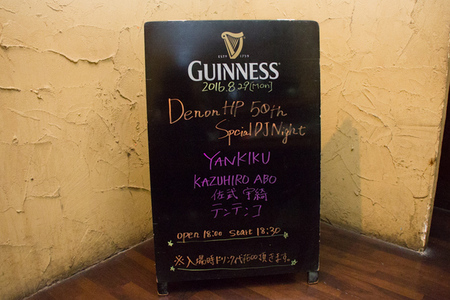 ESTD 1759
GUINNESS
2016.8.29[Mon]
Denon HP 50th
Spcial DJ Night
YANKIKU
KAZUHIRO ABO
佐武宇綺
テンテンコ
open 18:00 Start 18:30
※入場時ドリンク代¥600頂きます。